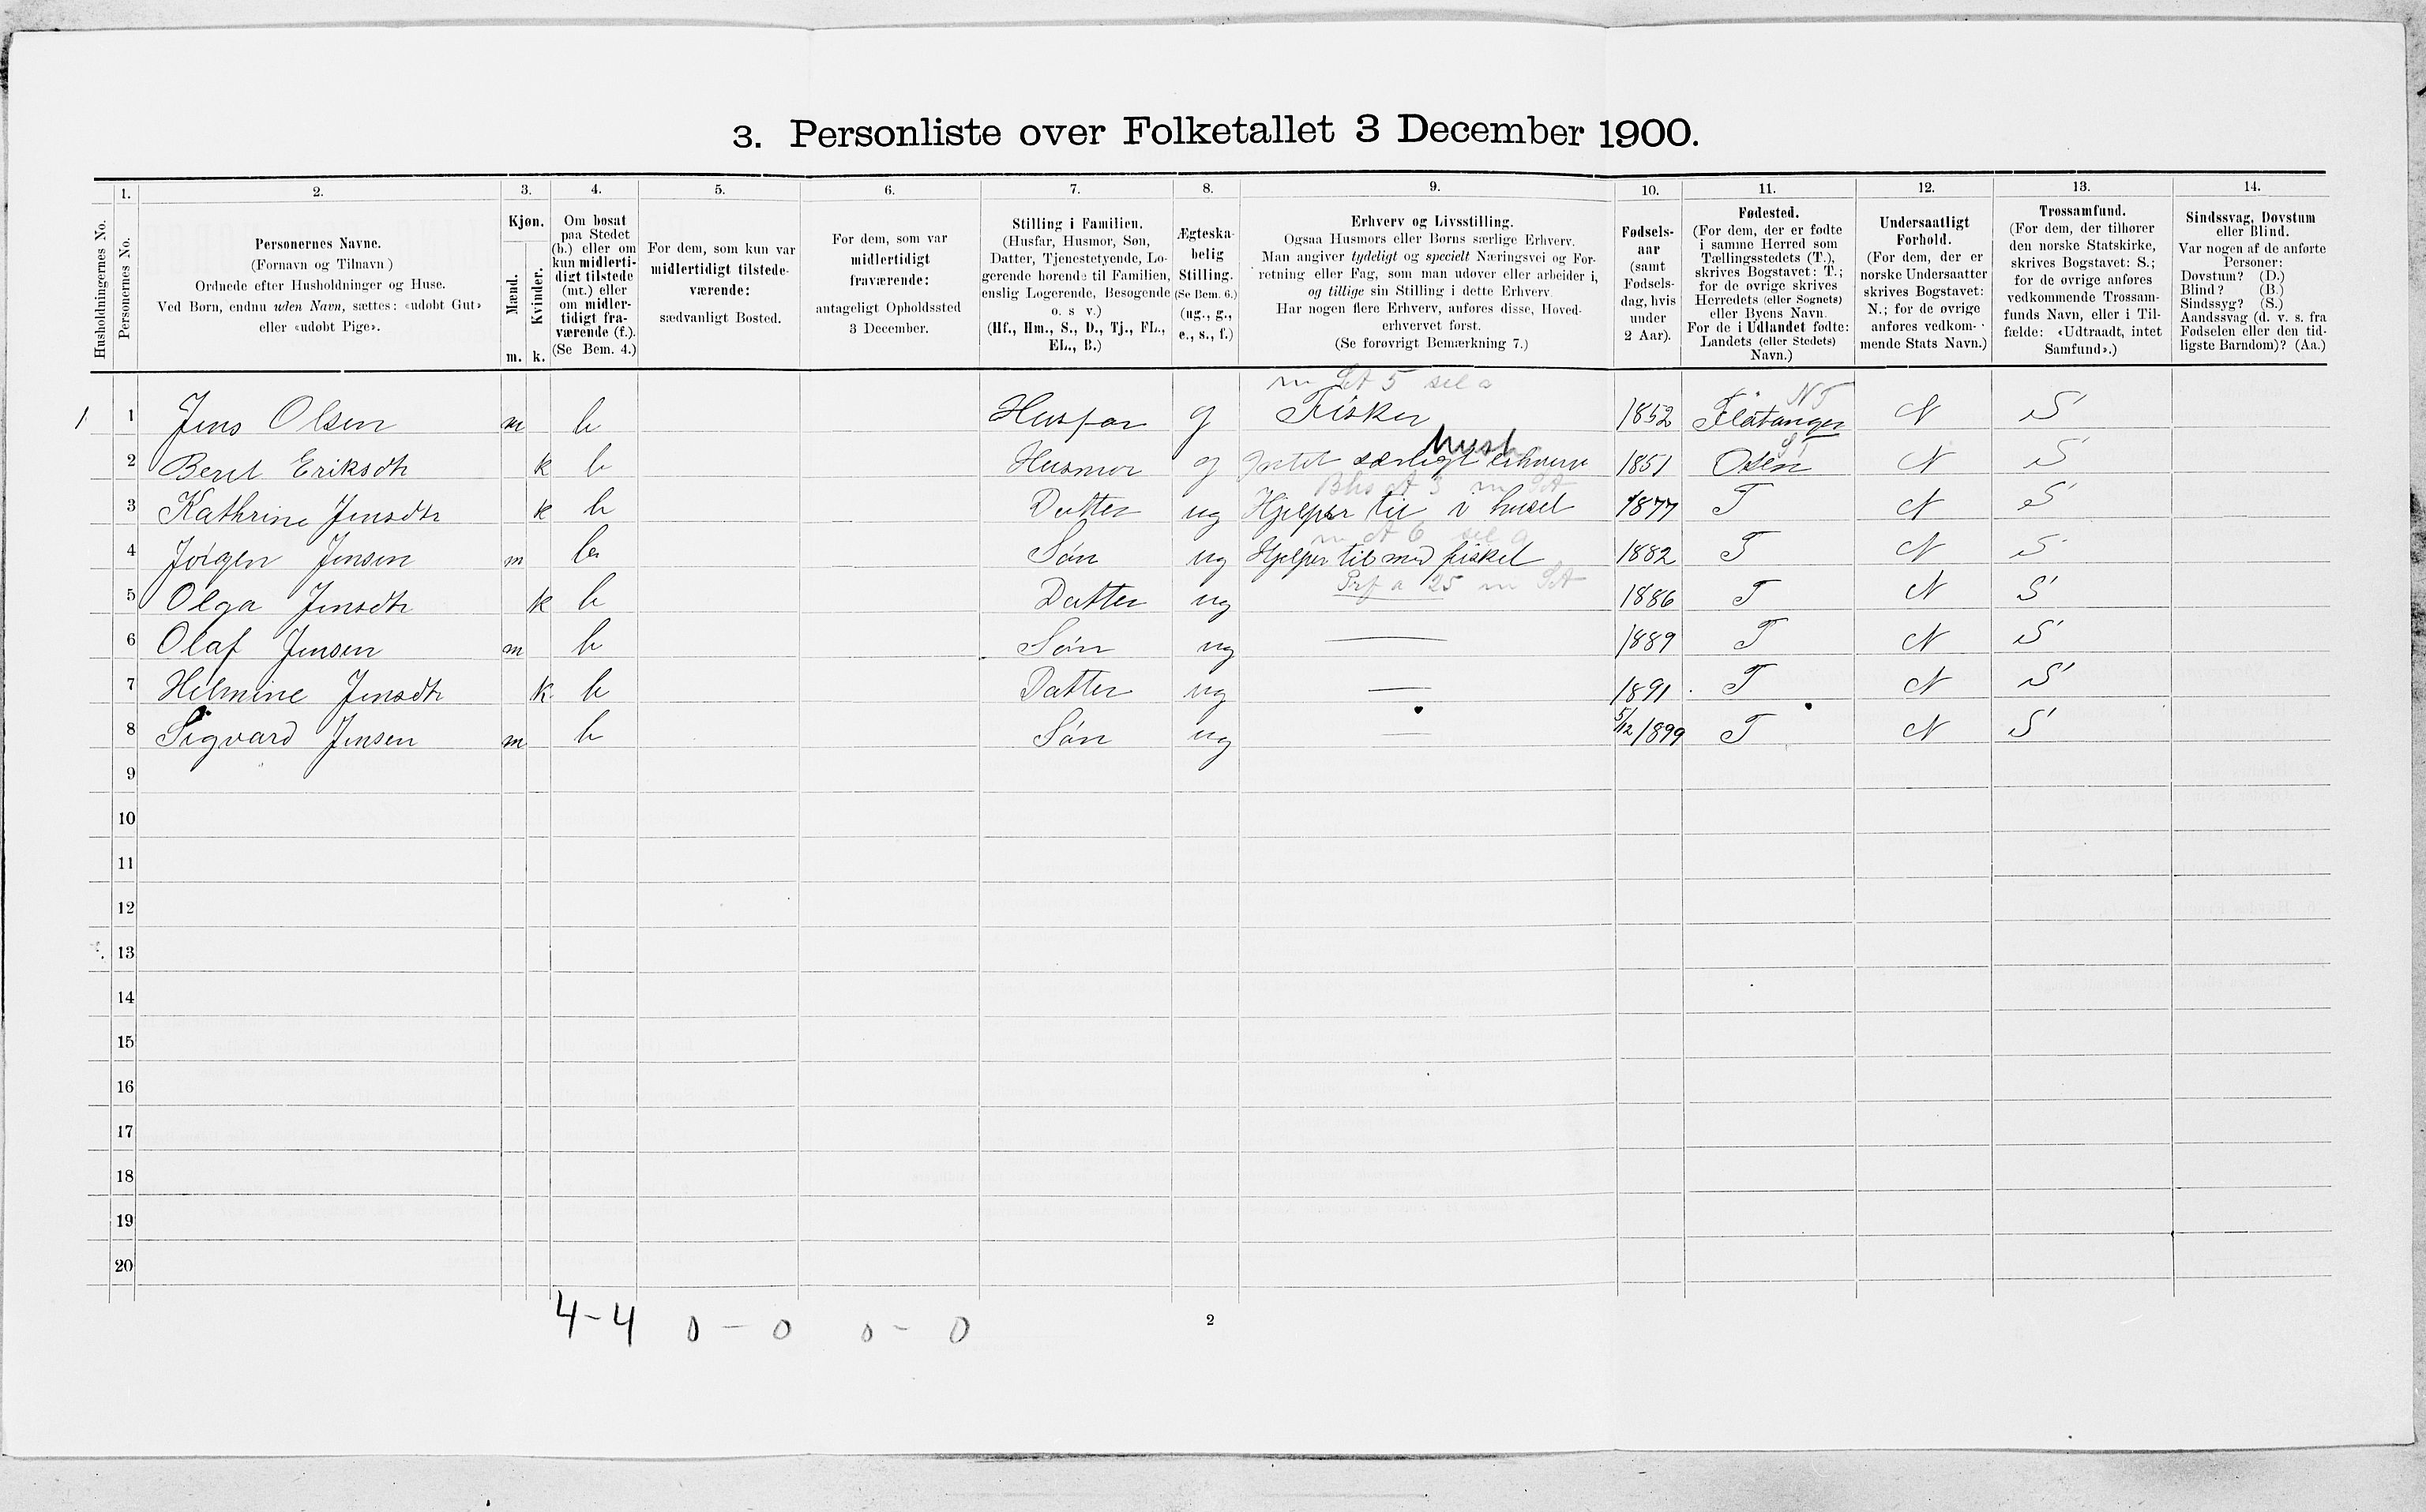 3. Personliste over Folketallet 3 December 1900.
1. 2. 3. 4. 5. 6. 7. 8. 9. 10. 11. 12. 13. 14.
Husholdningernes No.
Personernes No.
Personernes Navne.
(Fornavn og Tilnavn)
Ordnede efter Husholdninger og Huse.
Ved Børn, endnu uden Navn, sættes: «udøbt Gut»
eller «udøbt Pige».
Kjøn.
Mænd.
Kvinder.
m. k.
Om bosat
paa Stedet
(b.) eller om
kun midlerti-
digt tilstede
(mt.) eller
om midler-
tidigt fra-
værende (f.).
(Se Bem. 4.)
For dem, som kun var
midlertidigt tilstede-
værende:
sædvanligt Bosted.
For dem, som var
midlertidigt
fraværende:
antageligt Opholdssted
3 December.
Stilling i Familien.
(Husfar, Husmor, Søn,
Datter, Tjenestetyende, Lo-
gerende hørende til Familien,
enslig Logerende, Besøgende
o. s v.)
(Hf., Hm., S., D., Tj., FL.,
EL., B.)
Ægteska-
belig
Stilling.
(Se Bem. 6.)
(ug., g.,
e., s., f.)
Erhverv og Livsstilling.
Ogsaa Husmors eller Børns særlige Erhverv.
Man angiver tydeligt og specielt Næringsvei og For-
retning eller Fag, som man udøver eller arbeider i,
og tillige sin Stilling i dette Erhverv.
Har nogen flere Erhverv, anføres disse, Hoved-
erhvervet først.
(Se forøvrigt Bemærkning 7.)
Fødsels-
aar
(samt
Fødsels-
dag, hvis
under
2 Aar).
Fødested.
(For dem, der er fødte
i samme Herred som
Tællingsstedets (T.),
skrives Bogstavet: T.;
for de øvrige skrives
Herredets (eller Sognets)
eller Byens Navn.
For de i Udlandet fødte:
Landets (eller Stedets)
Navn.)
Undersaatligt
Forhold.
(For dem, der er
norske Undersaatter
skrives Bogstavet:
N.; for de øvrige
anføres vedkom-
mende Stats Navn.)
Trossamfund.
(For dem, der tilhører
den norske Statskirke,
skrives Bogstavet: S.;
for de øvrige anføres
vedkommende Trossam-
funds Navn, eller i Til-
fælde: «Udtraadt, intet
Samfund».)
Sindssvag, Døvstum
eller Blind.
Var nogen af de anførte
Personer:
Døvstum? (D.)
Blind? (B.)
Sindssyg? (S.)
Aandssvag (d. v. s. fra
Fødselen eller den tid-
ligste Barndom)? (Aa.)
NT
1 1 Jens Olsen m b Husfar g Fisker 1852 Flatanger N S
hush ST
2 Beret Eriksdtr k b Husmor g Intet særligt erhverv 1851 Osen N S
3 Kathrine Jensdtr k b Datter ug Hjelper til i huset 1877 T N S
4 Jørgen Jensen m b Søn ug Hjelper til med fisket 1882 T N S
5 Olga Jensdtr k b Datter ug 1886 T N S
6 Olaf Jensen m b Søn ug — 1889 T N S
7 Helmine Jensdtr k b Datter ug — 1891 T N S
8 Sigvard Jensen m b Søn ug — 5/12 1899 T N S
9
10
11
12
13
14
15
16
17
18
19
20
4-4 0-0 0-0
2